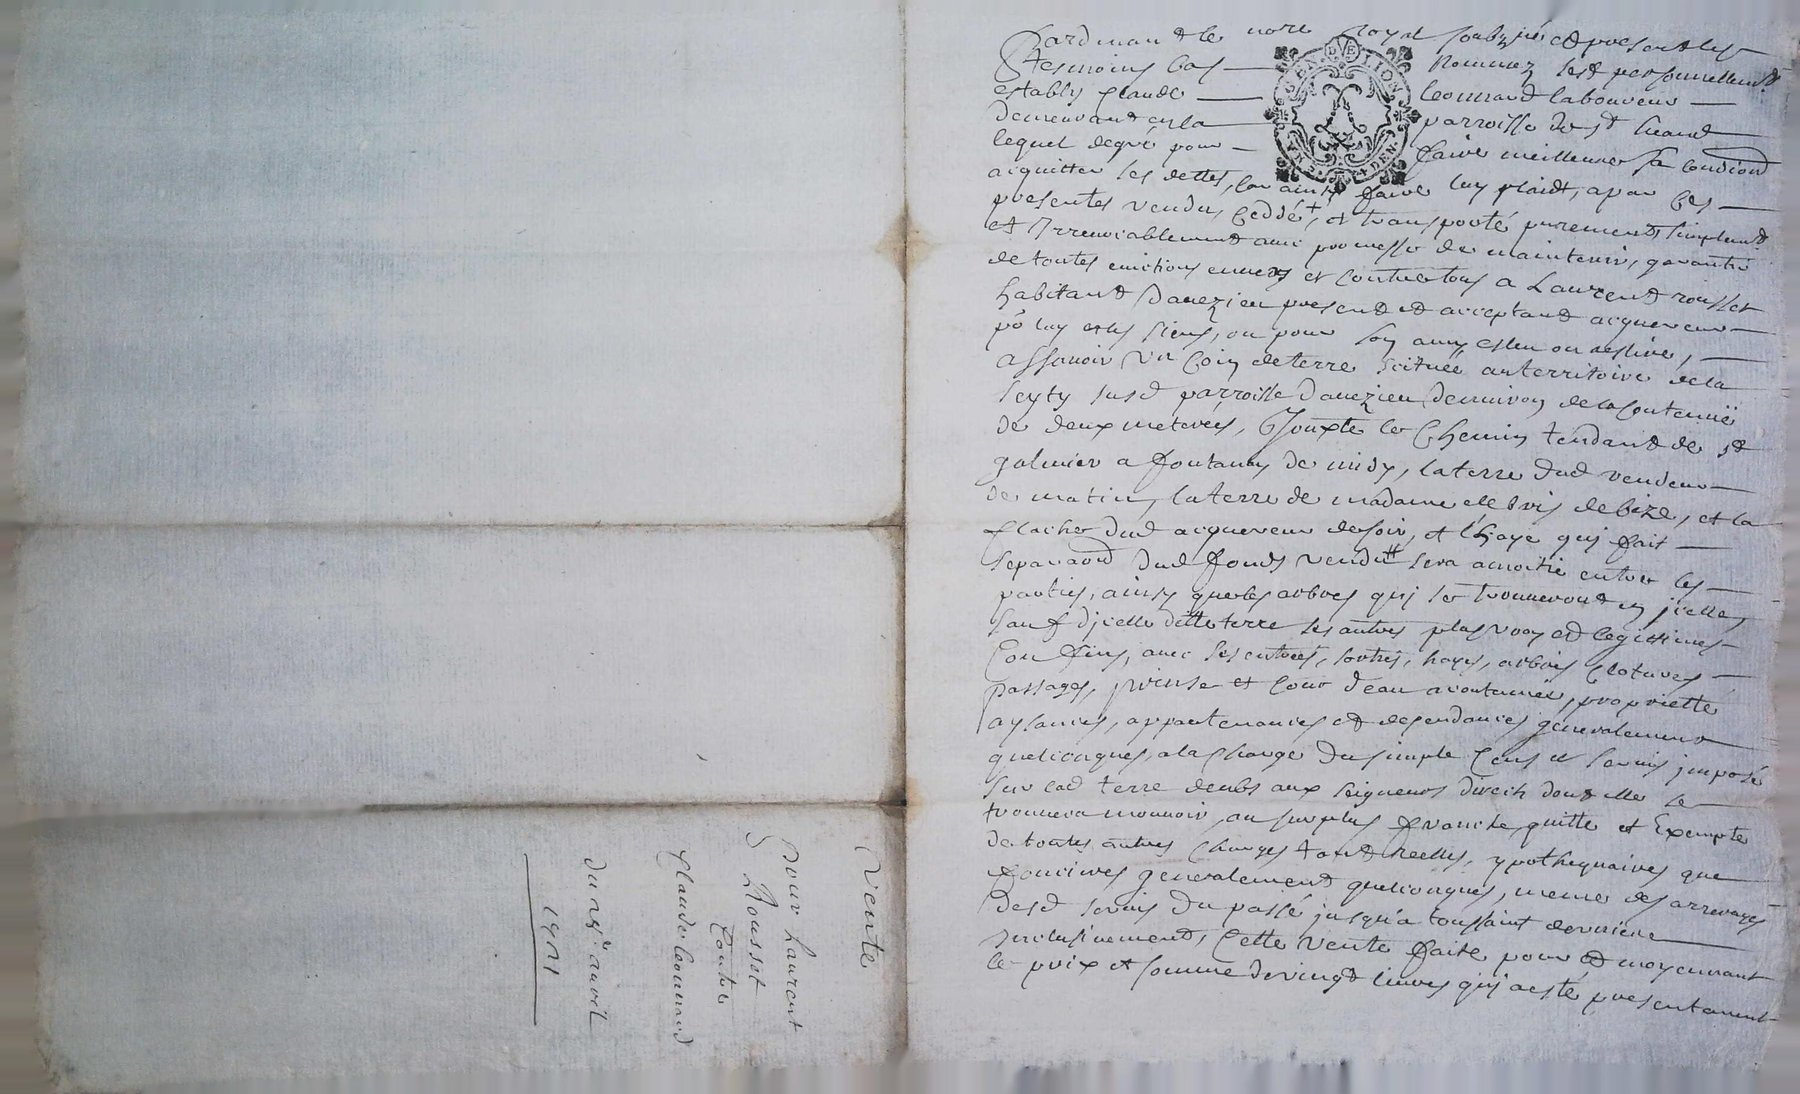 Pardevant le no.re Royal soubz.né et presents les
tesmoins bas nommez fust personnellem.t
estably Claude leonnard laboureur
demeurant en la parroisse de s.t heand
lequel de gré pour faire meilleure sa condiõn
acquitter ses dettes, car ainsy faire luy plaict, a par ces
presentes vendu ceddé+, et transporté purement, simplem.t
et Irrevocablement avec promesse de maintenir, garantir
de toutes evictions envers et contre tous a Laurent rousset
habitant Davezieu present et acceptant acquereur
po luy et les siens, ou pour son amy esleu ou a eslire,
assavoir un Coin de terre scituée au territoire de la
sus.d parroisse Davezieu Denviron de la Contenuë
de deux meterées, Jouxte le chemin tendant de s.t
galmier a fontanes de midy, la terre dud vendeur
de matin, la terre de madame de bize, et la
flache dud acquereur de soir, et l'haye quj fait
separaõn dud fonds vendu # sera a moitié entre les
parties, ainsy que les arbres quj se trouveront en jcelle,
sauf d'jcelle ditte terre ses autres plus vrays et legittimes
Confins, avec ses entrées, sorties, hayes, arbres Clotures
passages, prinse et Cour d'eau acoutumée, proprietté
aysances, appartenances et dependances generalement
quelconques, a la Charge du simple Cens et servis jmposé
sur lad terre deubs aux seigneurs directs dont elle se
trouvera mouvoir, au surplus franche quitte et Exempte
de toutes autres Charges tant reelles, ypothequaires que
foncieres generalement quelconques, meme des arrerages
desd servis du passé jusqu'a toussaint derniere
jnclusivement, Cette vente faite pour et moyennant
le prix et somme de vingt livres quj a esté presentement
Vente
Pour Laurent
Rousset
Contre
Claude leonnard
Du avril